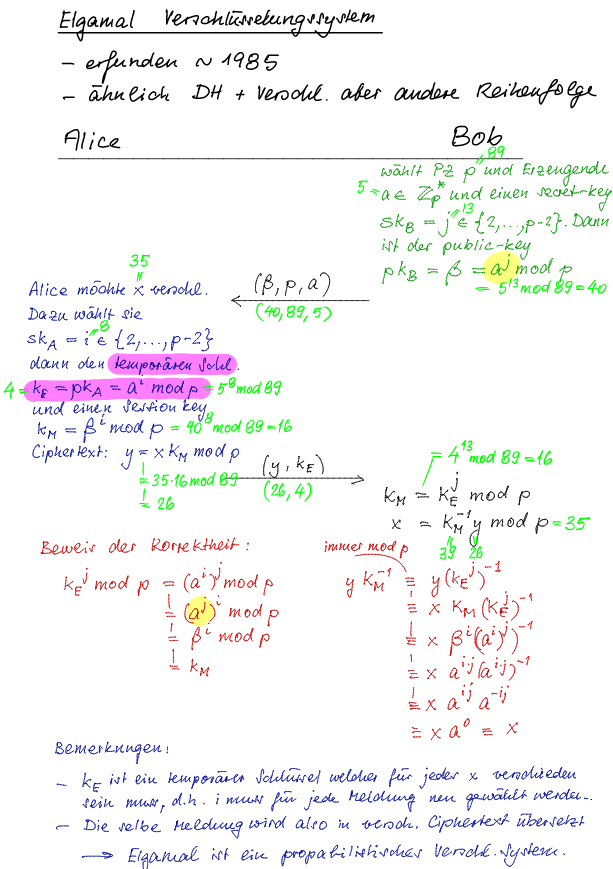 Elgamal Verschlüsselungssystem
- erfunden ~ 1985
- ähnlich DH + Verschl. aber andere Reihenfolge
Alice
Bob
wählt PZ p = 89 und Erzeugende
5 = a ∈ ℤp* und einen secret-key
skB = j = 13 ∈ {2,...,p-2}. Dann
ist der public-key
pkB = β = a^j mod p
= 5^13 mod 89 = 40
(β, p, a)
(40, 89, 5)
35
=
Alice möchte x verschl.
Dazu wählt sie
skA = i = 8 ∈ {2,...,p-2}
dann den temporären Schl.
4 = kE = pkA = a^i mod p = 5^8 mod 89
und einen Session key
kM = β^i mod p = 40^8 mod 89 = 16
Ciphertext: y = x kM mod p
= 35·16 mod 89
= 26
(y, kE)
(26, 4)
= 4^13 mod 89 = 16
kM = kE^j mod p
x = kM^-1 y mod p = 35
39 26
Beweis der Korrektheit:
kE^j mod p = (a^i)^j mod p
= (a^j)^i mod p
= β^i mod p
= kM
immer mod p
y kM^-1 ≡ y (kE^j)^-1
≡ x kM (kE^j)^-1
≡ x β^i (a^i)^j)^-1
≡ x a^i·j (a^i·j)^-1
≡ x a^ij a^-ij
≡ x a^0 ≡ x
Bemerkungen:
- kE ist ein temporärer Schlüssel welcher für jedes x verschieden
sein muss, d.h. i muss für jede Meldung neu gewählt werden.
- Die selbe Meldung wird also in versch. Ciphertext übersetzt
→ Elgamal ist ein propabilistisches Verschl. System.